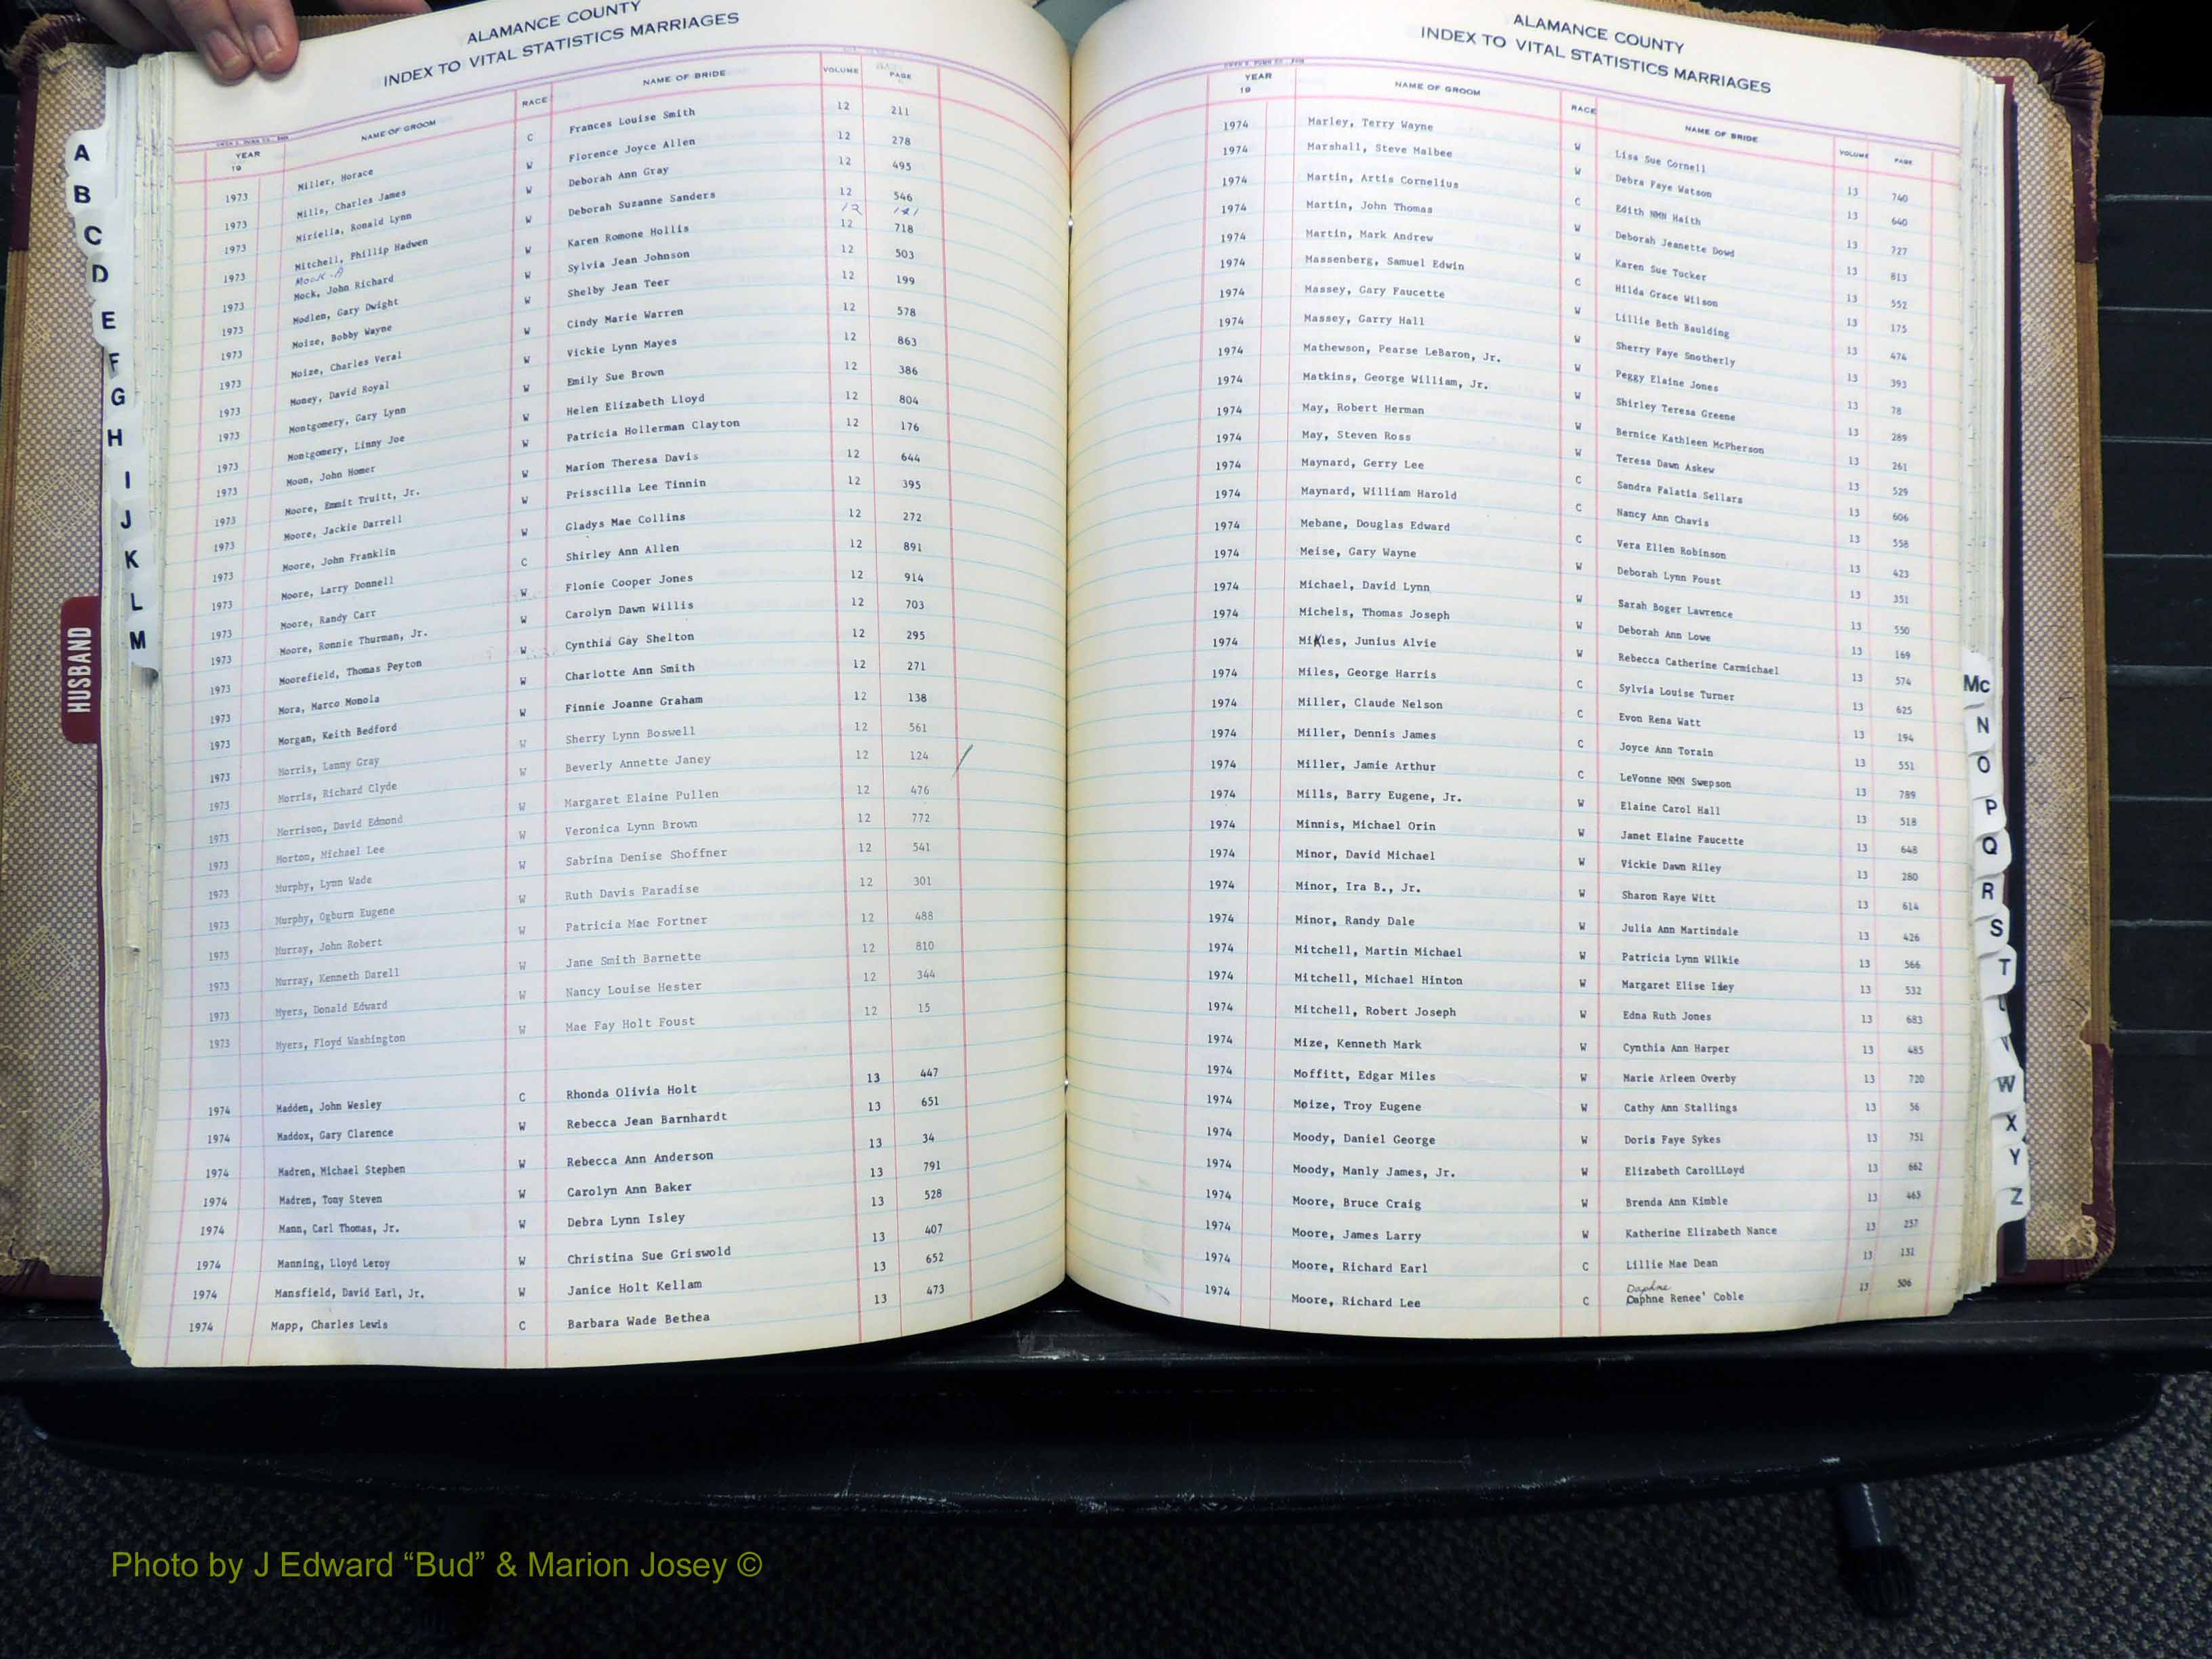 ALAMANCE COUNTY
INDEX TO VITAL STATISTICS MARRIAGES
YEAR 19 NAME OF GROOM RACE NAME OF BRIDE VOLUME PAGE
1973 Miller, Horace C Frances Louise Smith 12 211
1973 Mills, Charles James W Florence Joyce Allen 12 278
1973 Miriella, Ronald Lynn W Deborah Ann Gray 12 495
1973 Mitchell, Phillip Hadwen W Deborah Suzanne Sanders 12 546
Mock 12
1973 Mock, John Richard W Karen Romone Hollis 12 718
1973 Modlen, Gary Dwight W Sylvia Jean Johnson 12 503
1973 Moize, Bobby Wayne W Shelby Jean Teer 12 199
1973 Moize, Charles Veral W Cindy Marie Warren 12 578
1973 Money, David Royal W Vickie Lynn Mayes 12 863
1973 Montgomery, Gary Lynn W Emily Sue Brown 12 386
1973 Montgomery, Linny Joe W Helen Elizabeth Lloyd 12 804
1973 Moon, John Homer W Patricia Hollerman Clayton 12 176
1973 Moore, Emmit Truitt, Jr. W Marion Theresa Davis 12 644
1973 Moore, Jackie Darrell W Prisscilla Lee Tinnin 12 395
1973 Moore, John Franklin W Gladys Mae Collins 12 272
1973 Moore, Larry Donnell C Shirley Ann Allen 12 891
1973 Moore, Randy Carr W Flonie Cooper Jones 12 914
1973 Moore, Ronnie Thurman, Jr. W Carolyn Dawn Willis 12 703
1973 Moorefield, Thomas Peyton W Cynthia Gay Shelton 12 295
1973 Mora, Marco Monola W Charlotte Ann Smith 12 271
1973 Morgan, Keith Bedford W Finnie Joanne Graham 12 138
1973 Morris, Lanny Gray W Sherry Lynn Boswell 12 561
1973 Morris, Richard Clyde W Beverly Annette Janey 12 124
1973 Morrison, David Edmond W Margaret Elaine Pullen 12 476
1973 Morton, Michael Lee W Veronica Lynn Brown 12 772
1973 Murphy, Lynn Wade W Sabrina Denise Shoffner 12 541
1973 Murphy, Ogburn Eugene W Ruth Davis Paradise 12 301
1973 Murray, John Robert W Patricia Mae Fortner 12 488
1973 Murray, Kenneth Darell W Jane Smith Barnette 12 810
1973 Myers, Donald Edward W Nancy Louise Hester 12 344
1973 Myers, Floyd Washington W Mae Fay Holt Foust 12 15
1974 Madden, John Wesley C Rhonda Olivia Holt 13 447
1974 Maddox, Gary Clarence W Rebecca Jean Barnhardt 13 651
1974 Madren, Michael Stephen W Rebecca Ann Anderson 13 34
1974 Madren, Tony Steven W Carolyn Ann Baker 13 791
1974 Mann, Carl Thomas, Jr. W Debra Lynn Isley 13 528
1974 Manning, Lloyd Leroy W Christina Sue Griswold 13 407
1974 Mansfield, David Earl, Jr. W Janice Holt Kellam 13 652
1974 Mapp, Charles Lewis C Barbara Wade Bethea 13 473
A
B
C
D
E
F
G
H
I
J
K
L
M
HUSBAND
ALAMANCE COUNTY
INDEX TO VITAL STATISTICS MARRIAGES
YEAR 19 NAME OF GROOM RACE NAME OF BRIDE VOLUME PAGE
1974 Marley, Terry Wayne W Lisa Sue Cornell 13 740
1974 Marshall, Steve Malbee W Debra Faye Watson 13 640
1974 Martin, Artis Cornelius C Edith NMN Haith 13 727
1974 Martin, John Thomas W Deborah Jeanette Dowd 13 813
1974 Martin, Mark Andrew W Karen Sue Tucker 13 552
1974 Massenberg, Samuel Edwin C Hilda Grace Wilson 13 175
1974 Massey, Gary Faucette W Lillie Beth Baulding 13 474
1974 Massey, Garry Hall W Sherry Faye Snotherly 13 393
1974 Mathewson, Pearse LeBaron, Jr. W Peggy Elaine Jones 13 78
1974 Matkins, George William, Jr. W Shirley Teresa Greene 13 289
1974 May, Robert Herman W Bernice Kathleen McPherson 13 261
1974 May, Steven Ross W Teresa Dawn Askew 13 529
1974 Maynard, Gerry Lee C Sandra Falatia Sellars 13 606
1974 Maynard, William Harold C Nancy Ann Chavis 13 558
1974 Mebane, Douglas Edward C Vera Ellen Robinson 13 423
1974 Meise, Gary Wayne W Deborah Lynn Foust 13 351
1974 Michael, David Lynn W Sarah Boger Lawrence 13 550
1974 Michels, Thomas Joseph W Deborah Ann Lowe 13 169
1974 Mikles, Junius Alvie W Rebecca Catherine Carmichael 13 574
1974 Miles, George Harris C Sylvia Louise Turner 13 625
1974 Miller, Claude Nelson C Evon Rena Watt 13 194
1974 Miller, Dennis James C Joyce Ann Torain 13 551
1974 Miller, Jamie Arthur C LeVonne NMN Swepson 13 789
1974 Mills, Barry Eugene, Jr. W Elaine Carol Hall 13 518
1974 Minnis, Michael Orin W Janet Elaine Faucette 13 648
1974 Minor, David Michael W Vickie Dawn Riley 13 280
1974 Minor, Ira B., Jr. W Sharon Raye Witt 13 614
1974 Minor, Randy Dale W Julia Ann Martindale 13 426
1974 Mitchell, Martin Michael W Patricia Lynn Wilkie 13 566
1974 Mitchell, Michael Hinton W Margaret Elise Iley 13 532
1974 Mitchell, Robert Joseph W Edna Ruth Jones 13 683
1974 Mize, Kenneth Mark W Cynthia Ann Harper 13 485
1974 Moffitt, Edgar Miles W Marie Arleen Overby 13 720
1974 Moize, Troy Eugene W Cathy Ann Stallings 13 56
1974 Moody, Daniel George W Doris Faye Sykes 13 751
1974 Moody, Manly James, Jr. W Elizabeth CarolLLoyd 13 662
1974 Moore, Bruce Craig W Brenda Ann Kimble 13 463
1974 Moore, James Larry W Katherine Elizabeth Nance 13 237
1974 Moore, Richard Earl C Lillie Mae Dean 13 131
Daphne
1974 Moore, Richard Lee C Daphne Renee' Coble 13 506
Mc
N
O
P
Q
R
S
T
V
W
X
Y
Z
Photo by J Edward “Bud” & Marion Josey ©